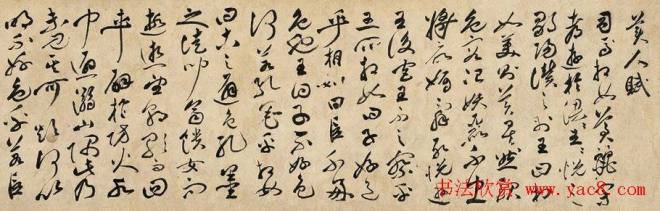 美人賦
司馬相如美麗閑
都遊於梁王々悅之
鄒陽譖之於王曰相
如美則美矣然服
色容冶妖麗不忠
將欲媚辭取悅遊
王後宮王不之察乎
王問相如曰子好色
乎相如曰臣不好
色也王曰子不好色
何若孔墨乎相如
曰古之避色孔墨
之徒聞齊饋女而
遐逝望朝歌而回
車譬於防火水
中避溺山隅此乃
未見其可欲何以
明不好色乎若臣
书法欣赏 www.yac8.com